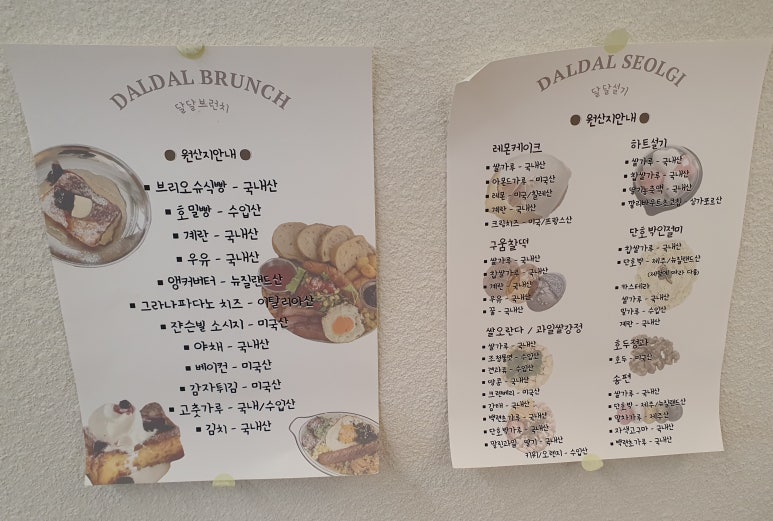 DALDAL BRUNCH
달달브런치
원산지안내
브리오슈식빵 - 국내산
호밀빵 - 수입산
계란 - 국내산
우유 - 국내산
앵커버터 - 뉴질랜드산
그라나파다노 치즈 - 이탈리아산
쟌슨빌 소시지 - 미국산
야채 - 국내산
베이컨 - 미국산
감자튀김 - 미국산
고춧가루 - 국내/수입산
김치 - 국내산
DALDAL SEOLGI
달달설기
원산지안내
레몬케이크
쌀가루 - 국내산
아몬드가루 - 미국산
레몬 - 미국/칠레산
계란 - 국내산
크림치즈 - 미국/프랑스산
구움찰떡
쌀가루 - 국내산
찹쌀가루 - 국내산
계란 - 국내산
우유 - 국내산
꿀 - 국내산
쌀오란다 / 과일쌀강정
쌀가루 - 국내산
조청물엿 - 수입산
견과류 - 수입산
땅콩 - 국내산
크랜베리 - 미국산
감태 - 국내산
백년초가루 - 국내산
단호박가루 - 국내산
말린과일 딸기 - 국내산
키위/오렌지 - 수입산
하트설기
쌀가루 - 국내산
찹쌀가루 - 국내산
딸기농축액 - 국내산
깔리바우트초코칩 - 싱가포르산
단호박인절미
찹쌀가루 - 국내산
단호박 - 제주/뉴질랜드산
(계절에따라 다름)
카스테라
쌀가루 - 국내산
밀가루 - 수입산
계란 - 국내산
호두정과
호두 - 미국산
송편
쌀가루 - 국내산
단호박 - 제주/뉴질랜드산
말차가루 - 제주산
자색고구마 - 국내산
백년초가루 - 국내산